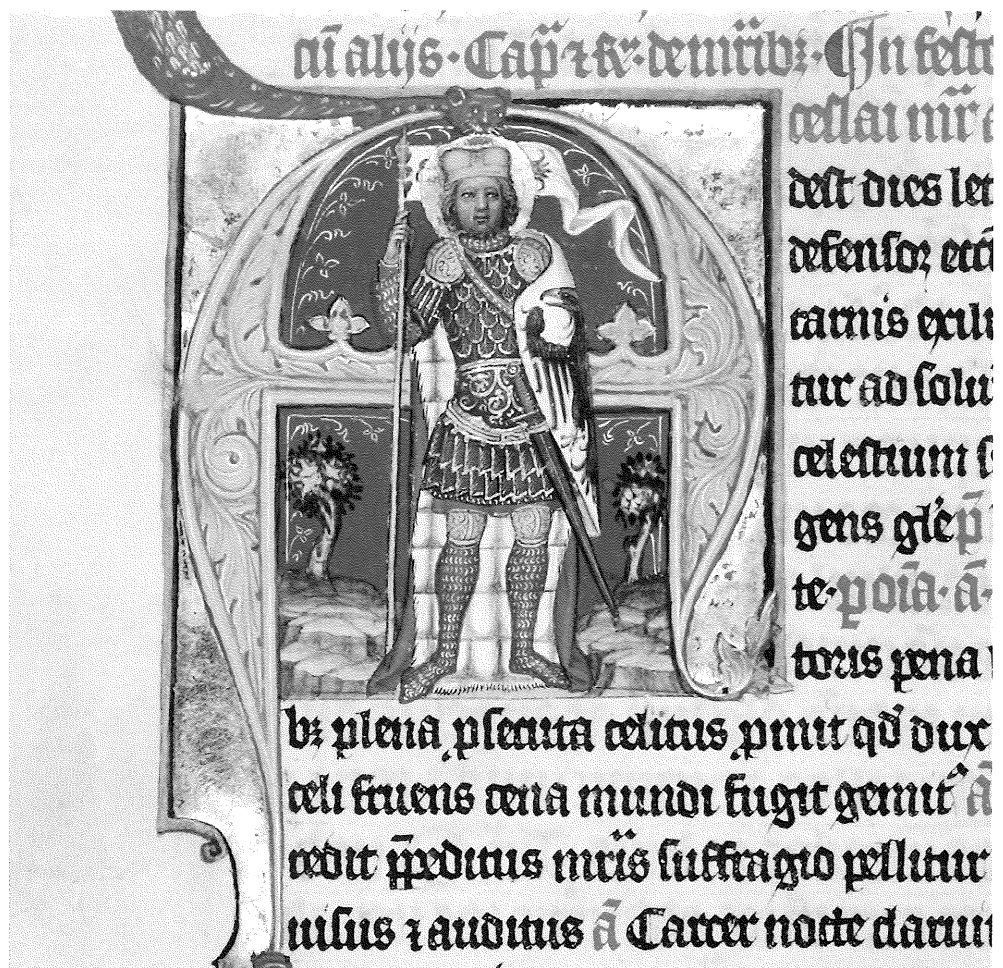 cū alijs · Cap̄ ⁊ ℟ · de mr̄ib⁊ · In festo
ceslai mr̄
dest dies let
defensor ecc̄
carnis exili
tur ad soliu
celestium s
gens gl̄e p̄
te · p oīa · ā ·
toris pena
b⁊ plena ꝑsecuta celitus ꝓmit qd̓ dux
celi fruens cena mundi fugit gemit᷑ ā
redit p̄peditus mr̄is suffragio pellitur
uisus ⁊ auditus ā Carcer nocte